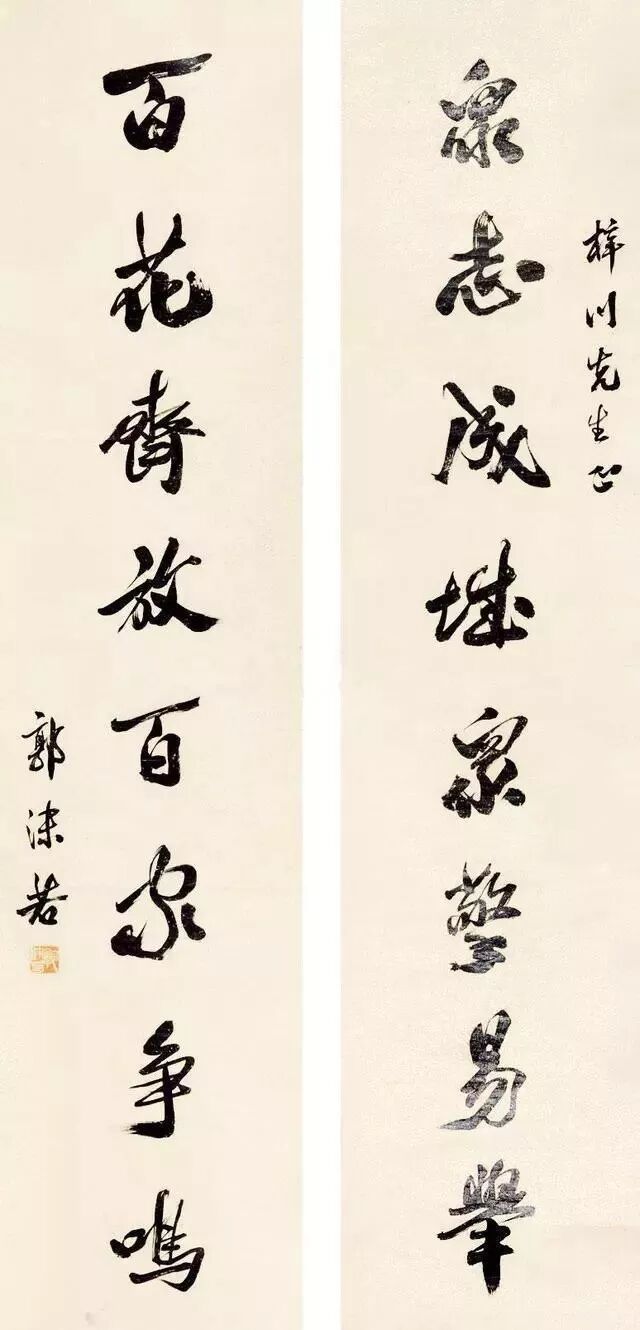 梓川先生正
眾志成城眾擎易舉
百花齊放百家争鳴
郭沫若